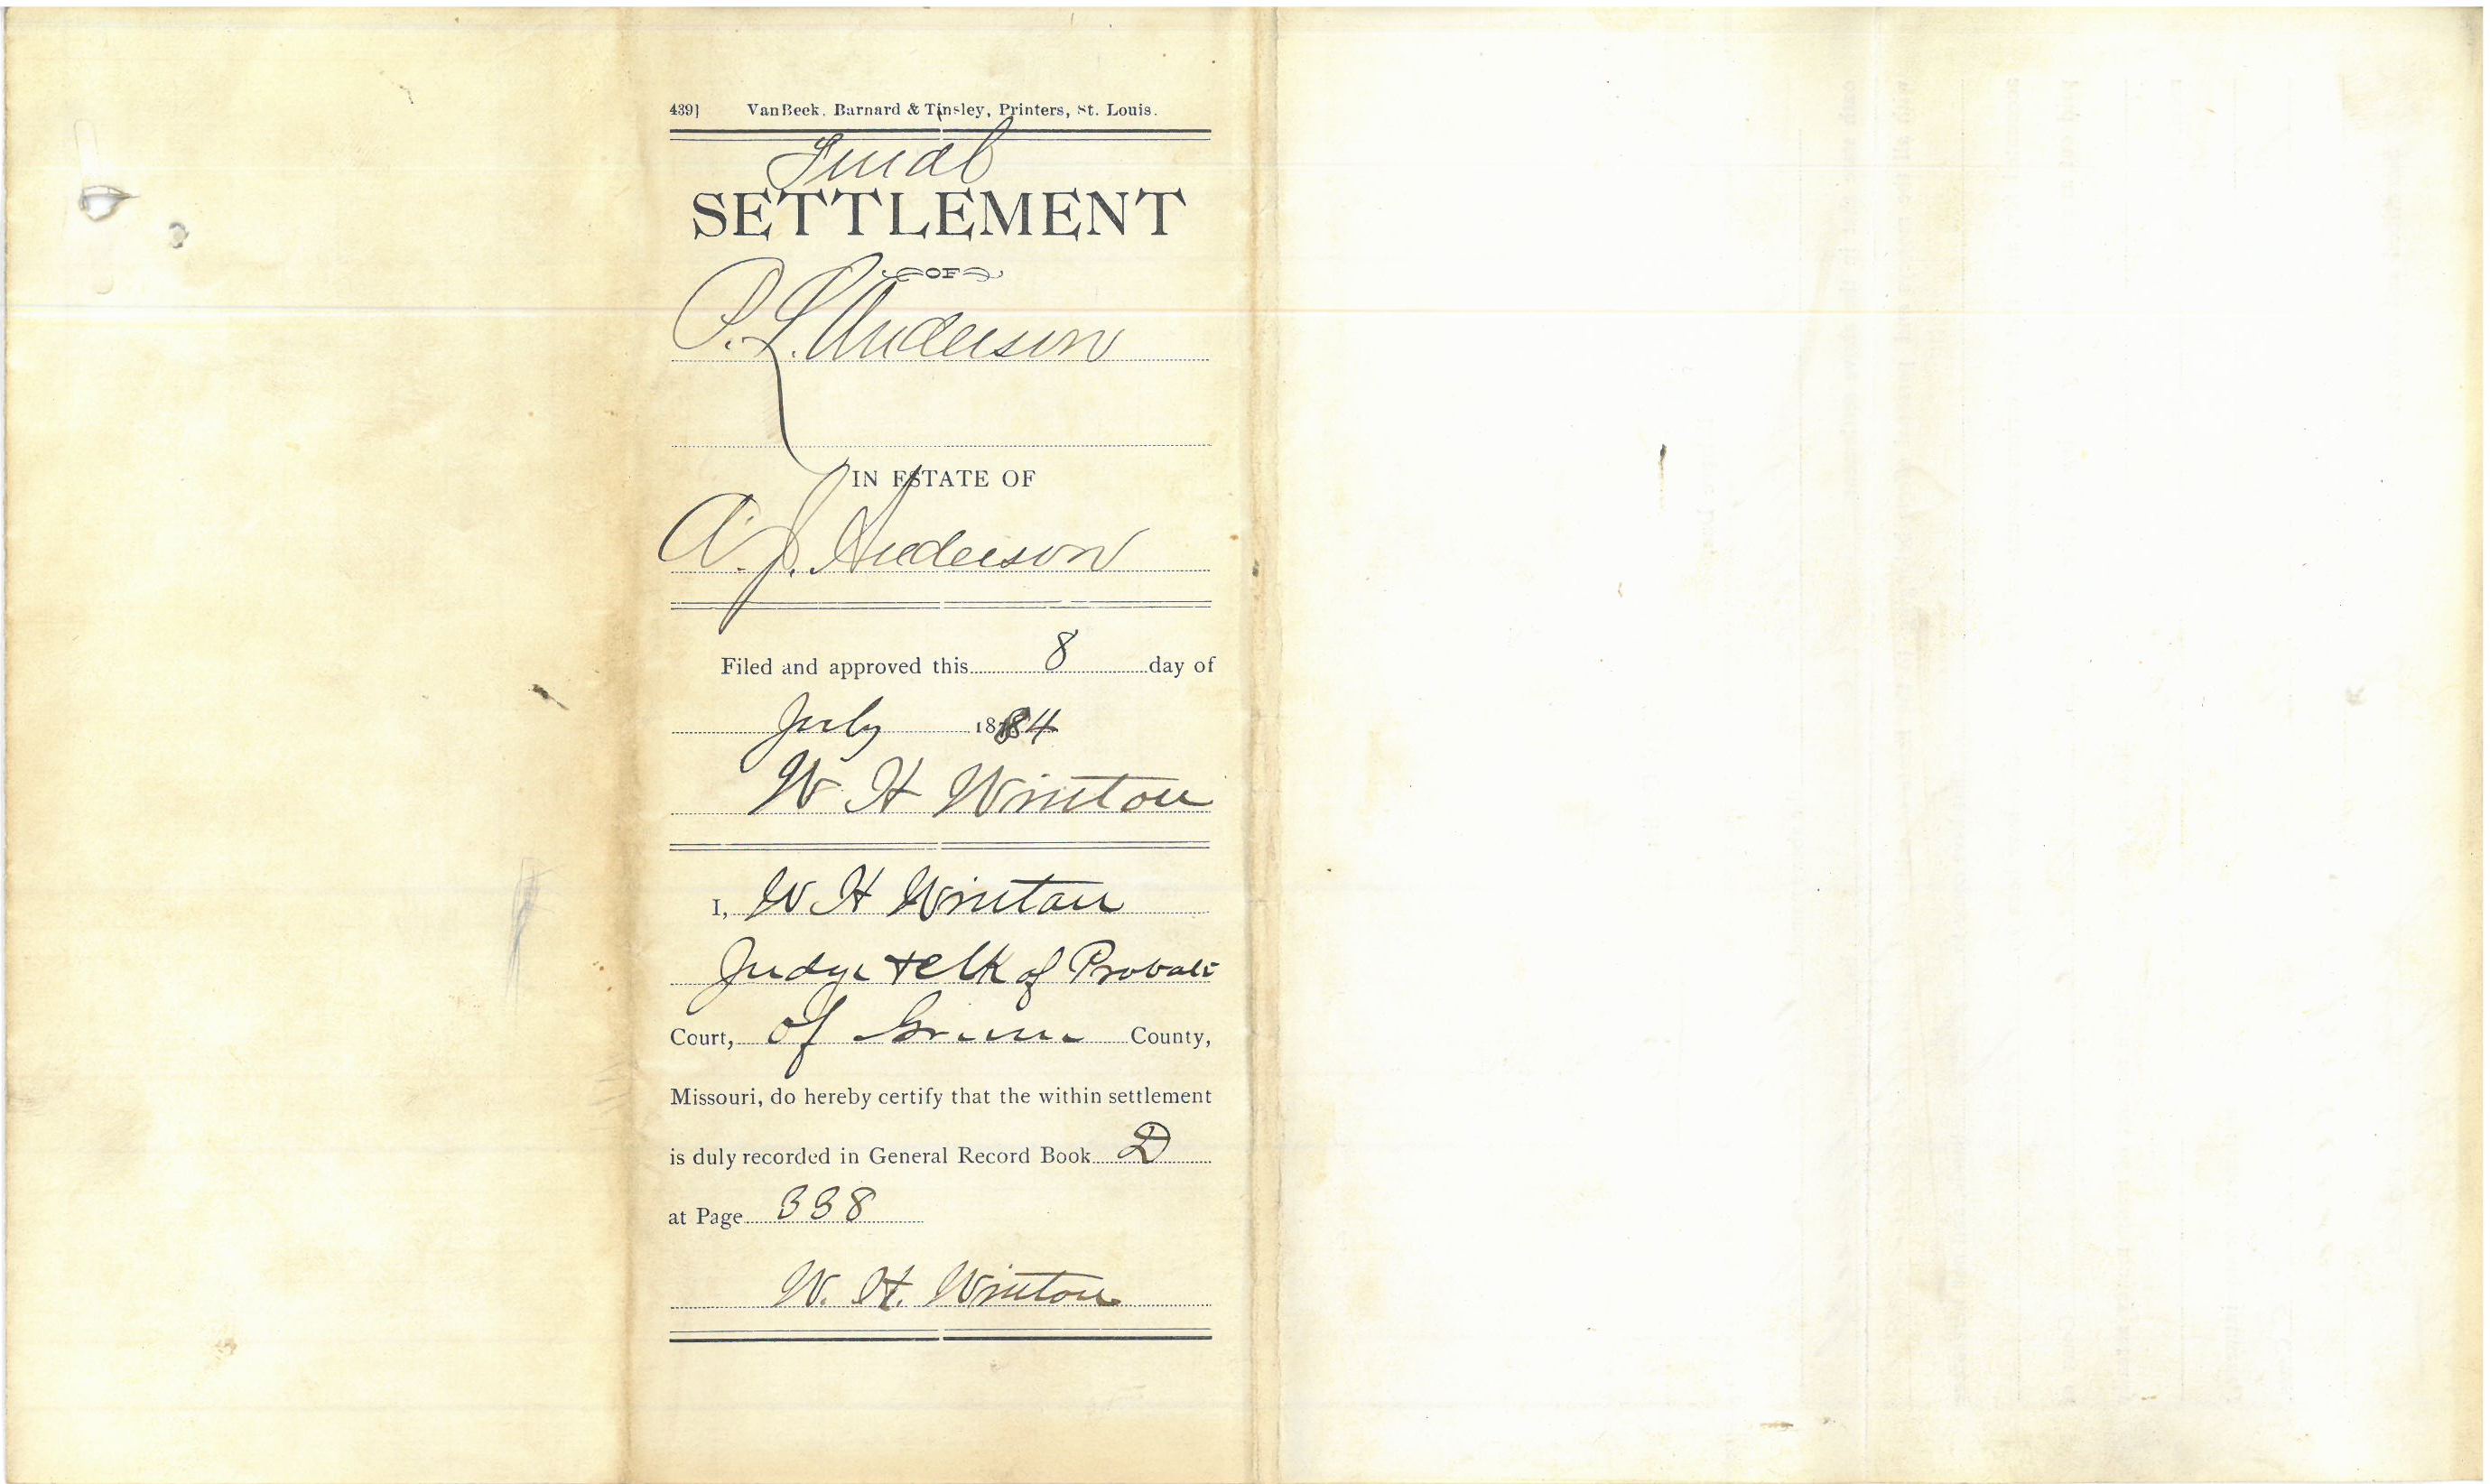 439] VanBeek, Barnard & Tinsley, Printers, St. Louis.
Final
SETTLEMENT
OF
P. L. Anderson
IN ESTATE OF
A. J. Anderson
Filed and approved this 8 day of
July 1884
W H Winton
I, W H Winton
Judge + Clk of Probate
Court, of Greene County,
Missouri, do hereby certify that the within settlement
is duly recorded in General Record Book D
at Page 338
W. H. Winton